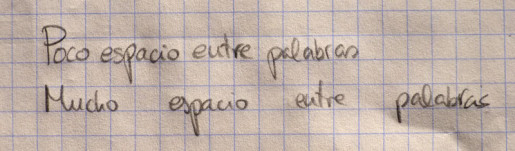 Poco espacio entre palabras
Mucho espacio entre palabras